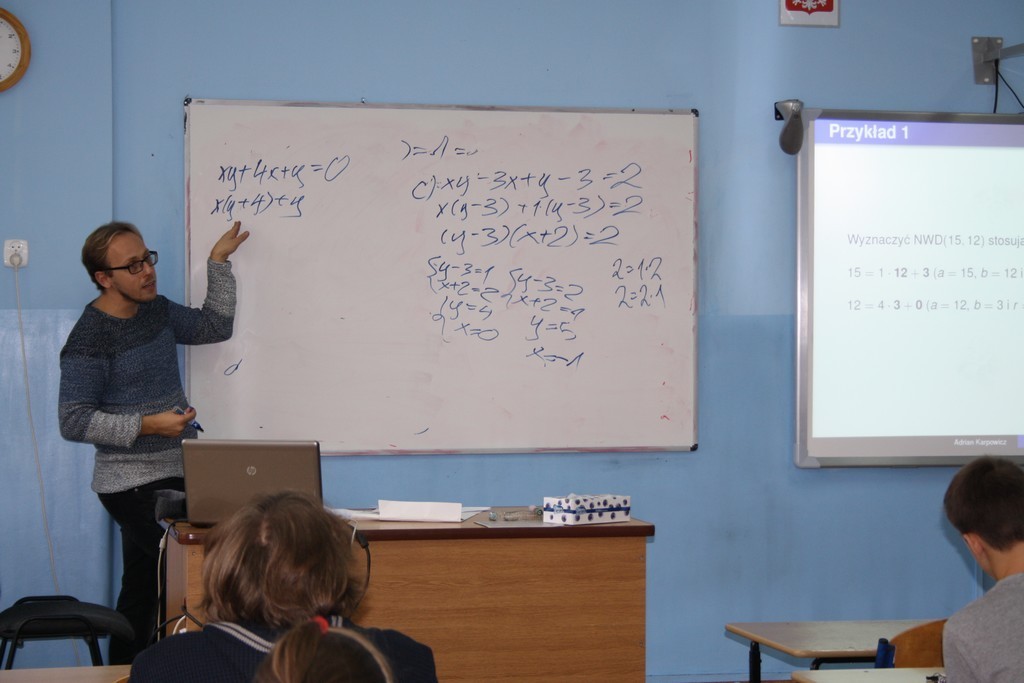 xy+4x+y=0
x(y+4)+y
c) xy-3x+y-3=2
x(y-3)+1(y-3)=2
(y-3)(x+2)=2
y-3=1
x+2=2
y=4
x=0
y-3=2
x+2=1
y=5
x=-1
2=1·2
2=2·1
Przykład 1
Wyznaczyć NWD(15, 12)
15 = 1 · 12 + 3 (a = 15, b = 12 i
12 = 4 · 3 + 0 (a = 12, b = 3 i r
Adrian Karpowicz
hp